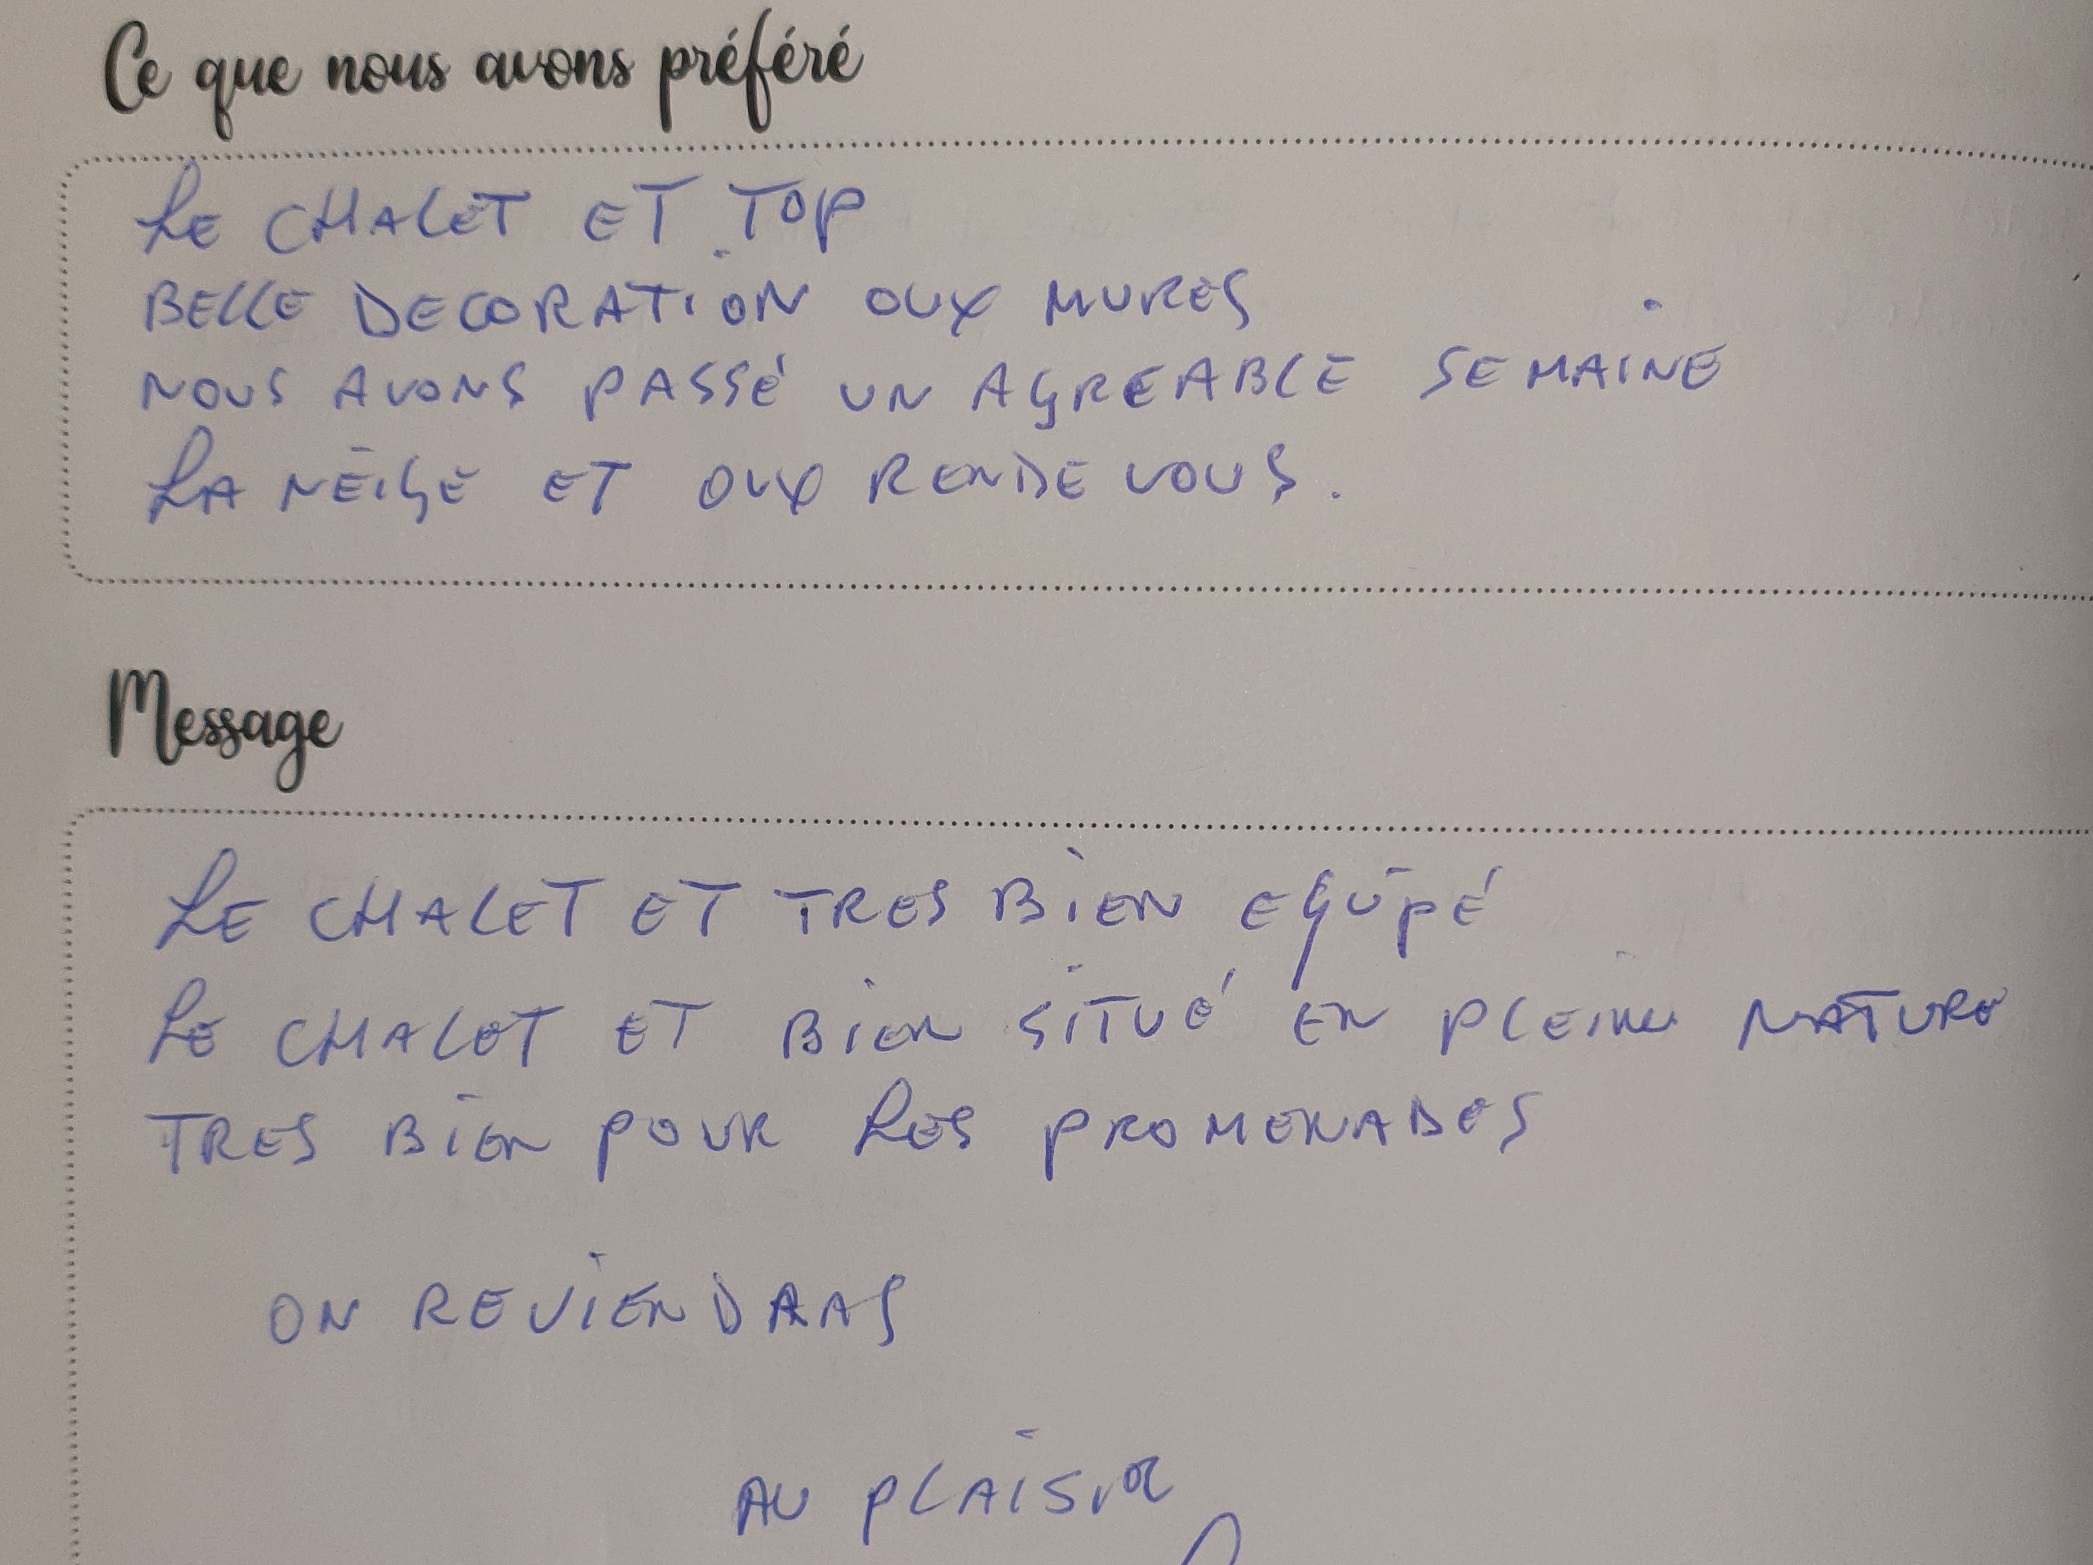 Ce que nous avons préféré
LE CHALET ET TOP
BELLE DECORATION OUX MURES
NOUS AVONS PASSÉ UN AGREABLE SEMAINE
LA NEIGE ET OUX RENDE VOUS.
Message
LE CHALET ET TRES BIEN EQUIPÉ
LE CHALET ET BIEN SITUÉ EN PLEINE NATURE
TRES BIEN POUR LES PROMENADES
ON REVIENDRAS
AU PLAISIR